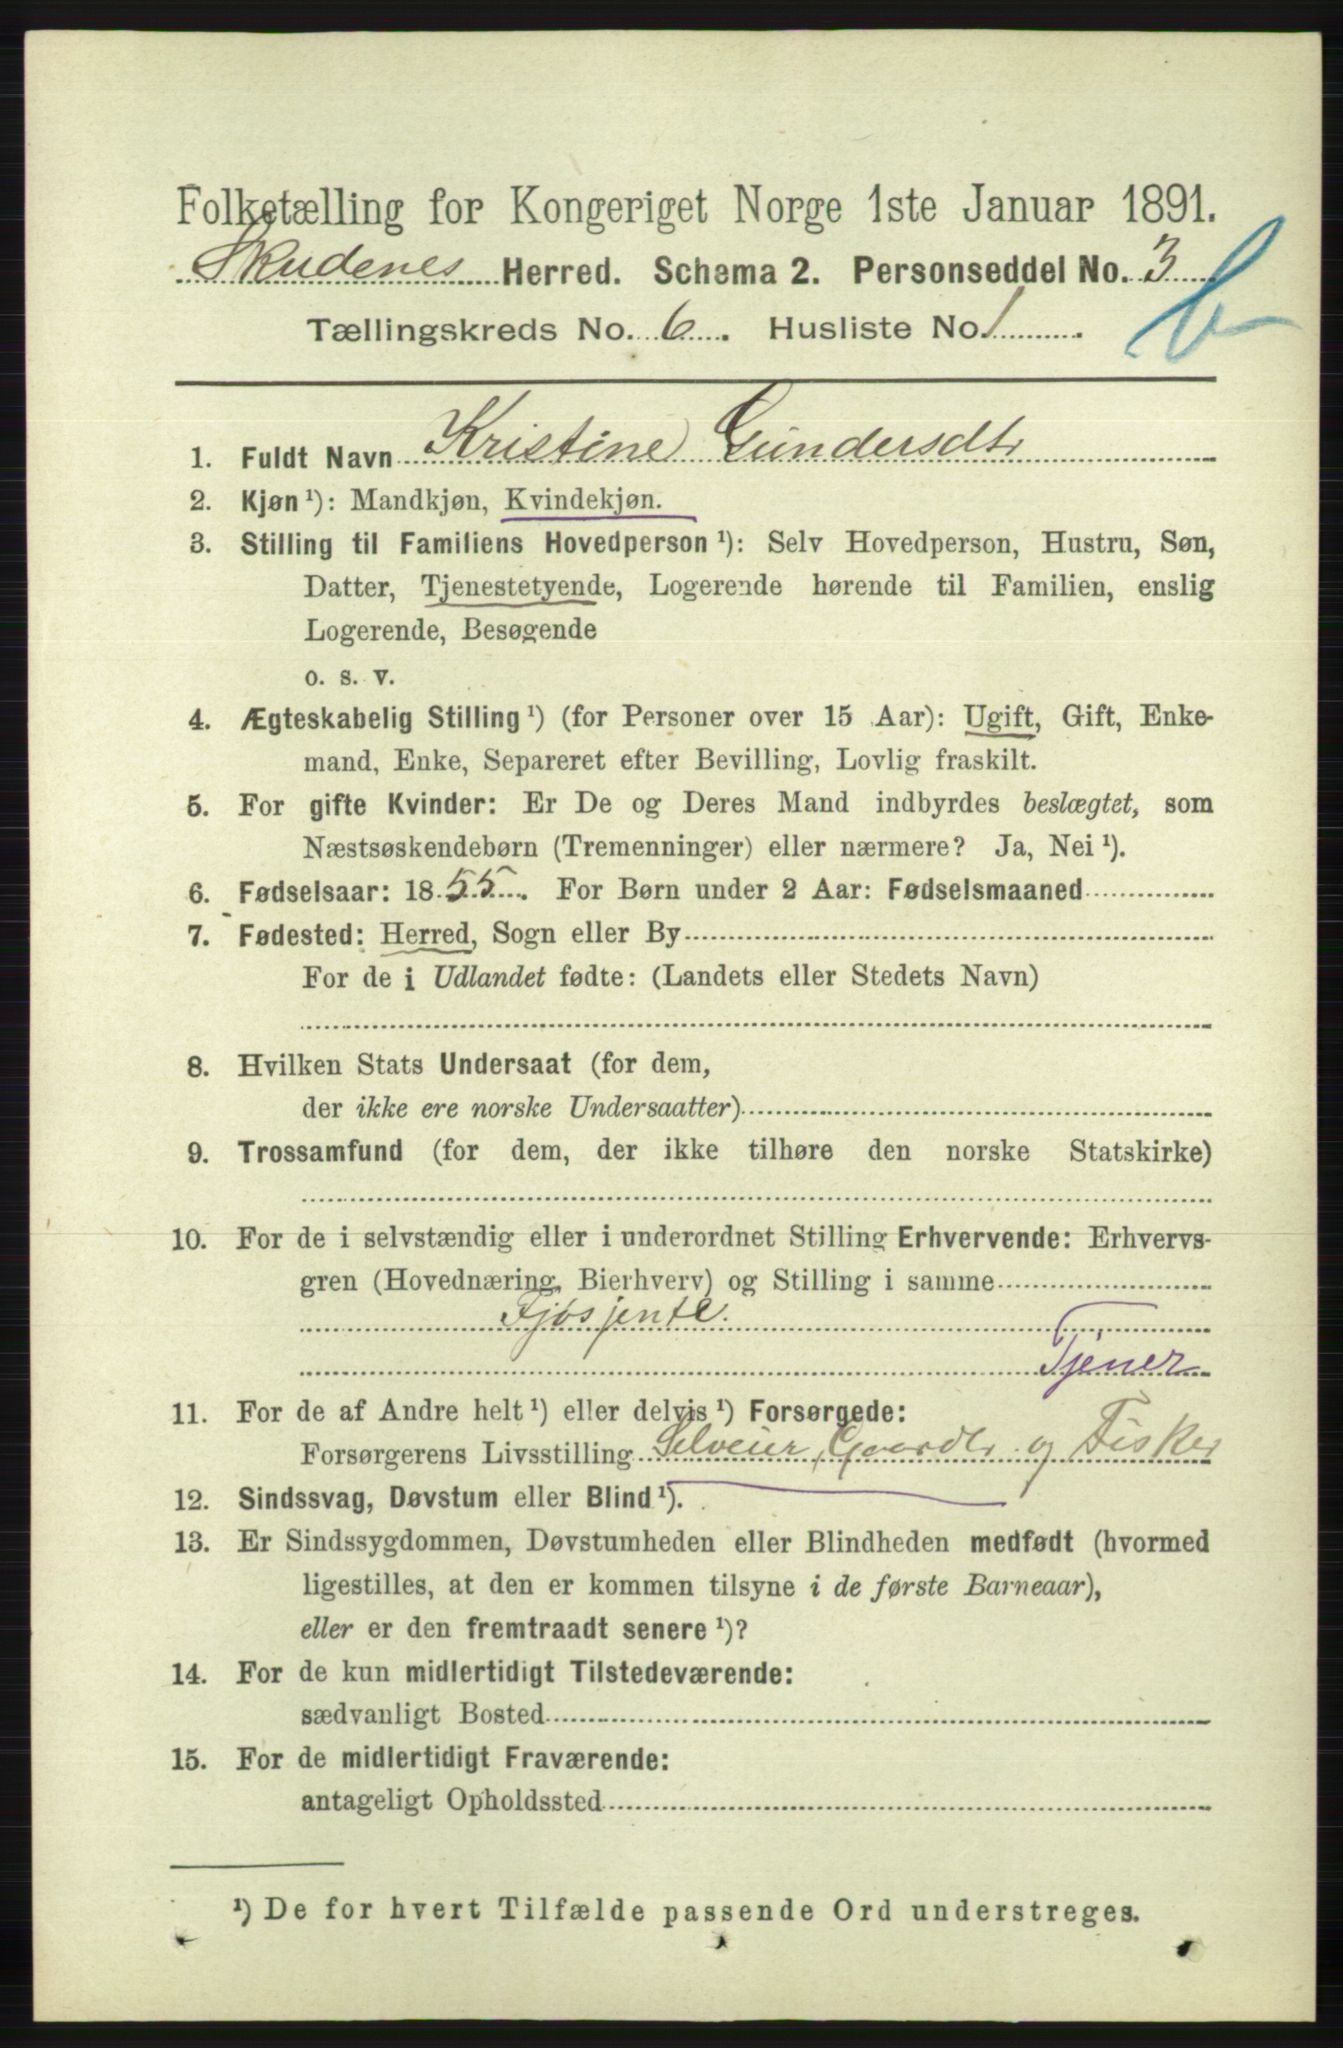 Folketælling for Kongeriget Norge 1ste Januar 1891.
Skudenes Herred. Schema 2. Personseddel No. 3
Tællingskreds No. 6. Husliste No. 1.
b
1. Fuldt Navn Kristine Gundersdtr
2. Kjøn ¹): Mandkjøn, Kvindekjøn.
3. Stilling til Familiens Hovedperson ¹): Selv Hovedperson, Hustru, Søn,
Datter, Tjenestetyende, Logerende hørende til Familien, enslig
Logerende, Besøgende
o. s. v.
4. Ægteskabelig Stilling ¹) (for Personer over 15 Aar): Ugift, Gift, Enke-
mand, Enke, Separeret efter Bevilling, Lovlig fraskilt.
5. For gifte Kvinder: Er De og Deres Mand indbyrdes beslægtet, som
Næstsøskendebørn (Tremenninger) eller nærmere? Ja, Nei ¹).
6. Fødselsaar: 1855. For Børn under 2 Aar: Fødselsmaaned
7. Fødested: Herred, Sogn eller By
For de i Udlandet fødte: (Landets eller Stedets Navn)
8. Hvilken Stats Undersaat (for dem,
der ikke ere norske Undersaatter)
9. Trossamfund (for dem, der ikke tilhøre den norske Statskirke)
10. For de i selvstændig eller i underordnet Stilling Erhvervende: Erhvervs-
gren (Hovednæring, Bierhverv) og Stilling i samme
Fjøsjente.
Tjener
11. For de af Andre helt ¹) eller delvis ¹) Forsørgede:
Forsørgerens Livsstilling Selveier, Gaardbr. og Fisker
12. Sindssvag, Døvstum eller Blind ¹).
13. Er Sindssygdommen, Døvstumheden eller Blindheden medfødt (hvormed
ligestilles, at den er kommen tilsyne i de første Barneaar),
eller er den fremtraadt senere ¹)?
14. For de kun midlertidigt Tilstedeværende:
sædvanligt Bosted
15. For de midlertidigt Fraværende:
antageligt Opholdssted
¹) De for hvert Tilfælde passende Ord understreges.